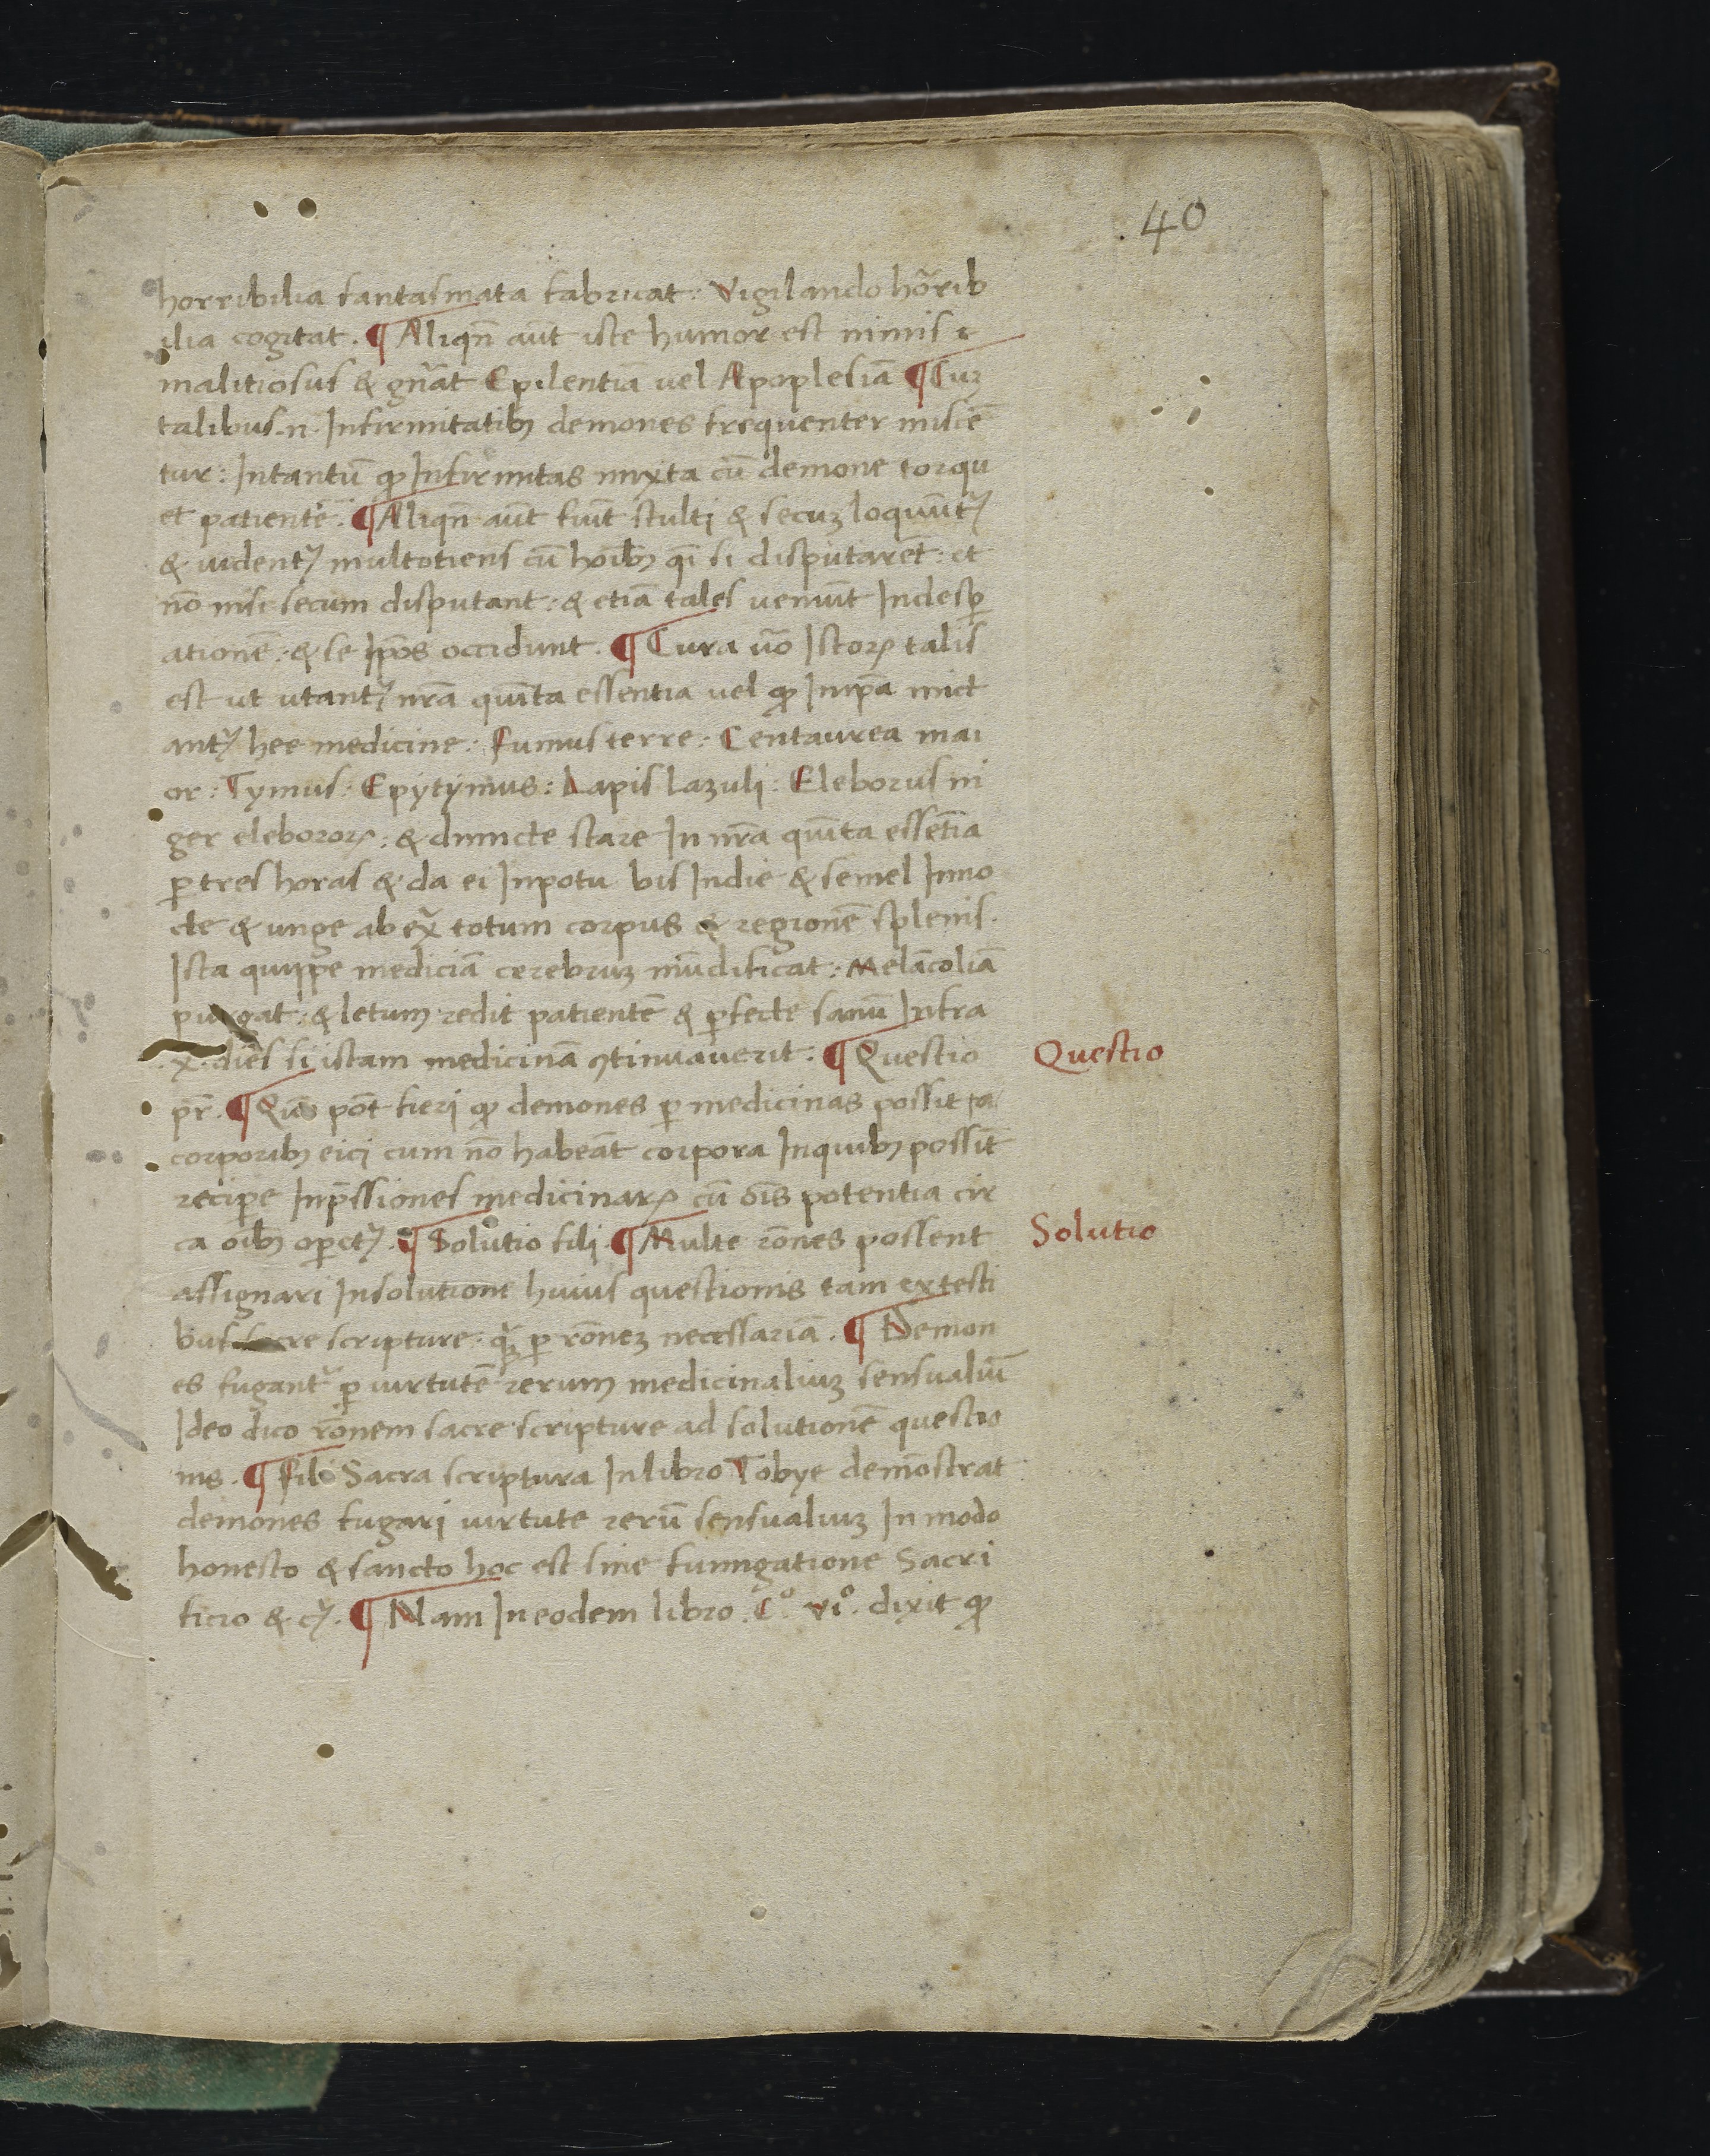 40
horribilia fantasmata fabricat: Vigilando hor̃rib
ilia cogitat. ¶ Aliqñ aũt iste humor est nimis
malitiosus & gñat Epilentiã uel Apoplesiã ¶ Cuꝫ
talibus .n. Infirmitatibꝫ demones frequenter miscẽ
tur: Intantũ ꝙ Infirmitas mixta cũ demone torqu
et patientẽ. ¶ Aliqñ aũt fiũt stulti & secuꝫ loquũtᷣ
& uidentᷣ multotiens cũ hoĩbꝫ q̃i si disputarẽt: et
nõ nisi secum disputant: & etiã tales ueniũt Indesꝑ
ationẽ: & se Ip̃os occidunt. ¶ Cura ũo Istoꝝ talis
est ut utantᷣ nr̃a quĩta essentia uel ꝙ Inip̃a mict
antᷣ hee medicine: fumusterre: Centaurea mai
or: Tymus: Epytymus: Lapis lazuli: Eleborus ni
ger eleboroꝝ: & dimicte stare In nr̃a quĩta essẽtia
ꝑ tres horas & da ei Inpotu bis Indie & semel Inno
cte & unge ab ex̃ totum corpus & regionẽ splenis.
Ista quippe mediciã cerebruꝫ mũdificat: Melãcoliã
purgat: & letum redit patientẽ & ꝑfecte sanũ Infra
.x. dies si istam medicinã ꝯtinuauerit: ¶ Questio
Questio
pr̃. ¶ Quõ põt fieri ꝙ demones ꝑ medicinas possit a
corporibꝫ eici cum nõ habeãt corpora Inquibꝫ possĩt
recipe Inp̃ssiones medicinaꝝ cũ oĩs potentia cir
ca oĩbꝫ oꝑetᷣ. ¶ Solutio fili ¶ Multe rõnes possent
Solutio
assignari Insolutione huius questionis tam ex testi
bus sacre scripture: q̃ꝫ ꝑ rõneꝫ necessariã. ¶ Demon
es fugantᷣ ꝑ uirtutẽ rerum medicinaliuꝫ sensualiũ
Ideo dico rõnem sacre scripture ad solutionẽ questio
nis. ¶ fili Sacra scriptura In libro Tobye demõstrat
demones fugari uirtute rerũ sensualiuꝫ In modo
honesto & sancto hoc est sine fumigatione Sacri
ficio & cᷣ. ¶ Nam In eodem libro .C°. vi°. dixit ꝙ